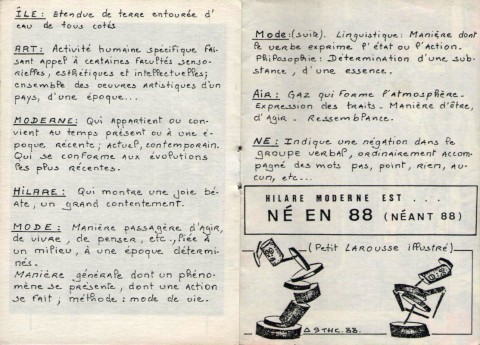 ÎLE : Etendue de terre entourée d'
eau de tous cotés
ART : Activité humaine spécifique fai-
sant appel à certaines facultés senso-
rielles, esthétiques et intellectuelles;
ensemble des oeuvres artistiques d'un
pays, d'une époque...
MODERNE : Qui appartient ou con-
vient au temps présent ou à une é-
poque récente; actuel, contemporain.
Qui se conforme aux évolutions
les plus récentes.
HILARE : Qui montre une joie bé-
ate, un grand contentement.
MODE : Manière passagère d'agir,
de vivre, de penser, etc., liée à
un milieu, à une époque détermi-
nés.
Manière générale dont un phéno-
mène se présente, dont une action
se fait; méthode : mode de vie.
Mode : (suite). Linguistique : Manière dont
le verbe exprime l'état ou l'action.
Philosophie : Détermination d'une sub-
stance, d'une essence.
Air : Gaz qui forme l'atmosphère.
Expression des traits - Manière d'être,
d'agir - Ressemblance.
NE : Indique une négation dans le
groupe verbal, ordinairement accom-
pagné des mots pas, point, rien, au-
cun, etc...
HILARE MODERNE EST ...
NÉ EN 88 (NÉANT 88)
(Petit LAROUSSE illustré)